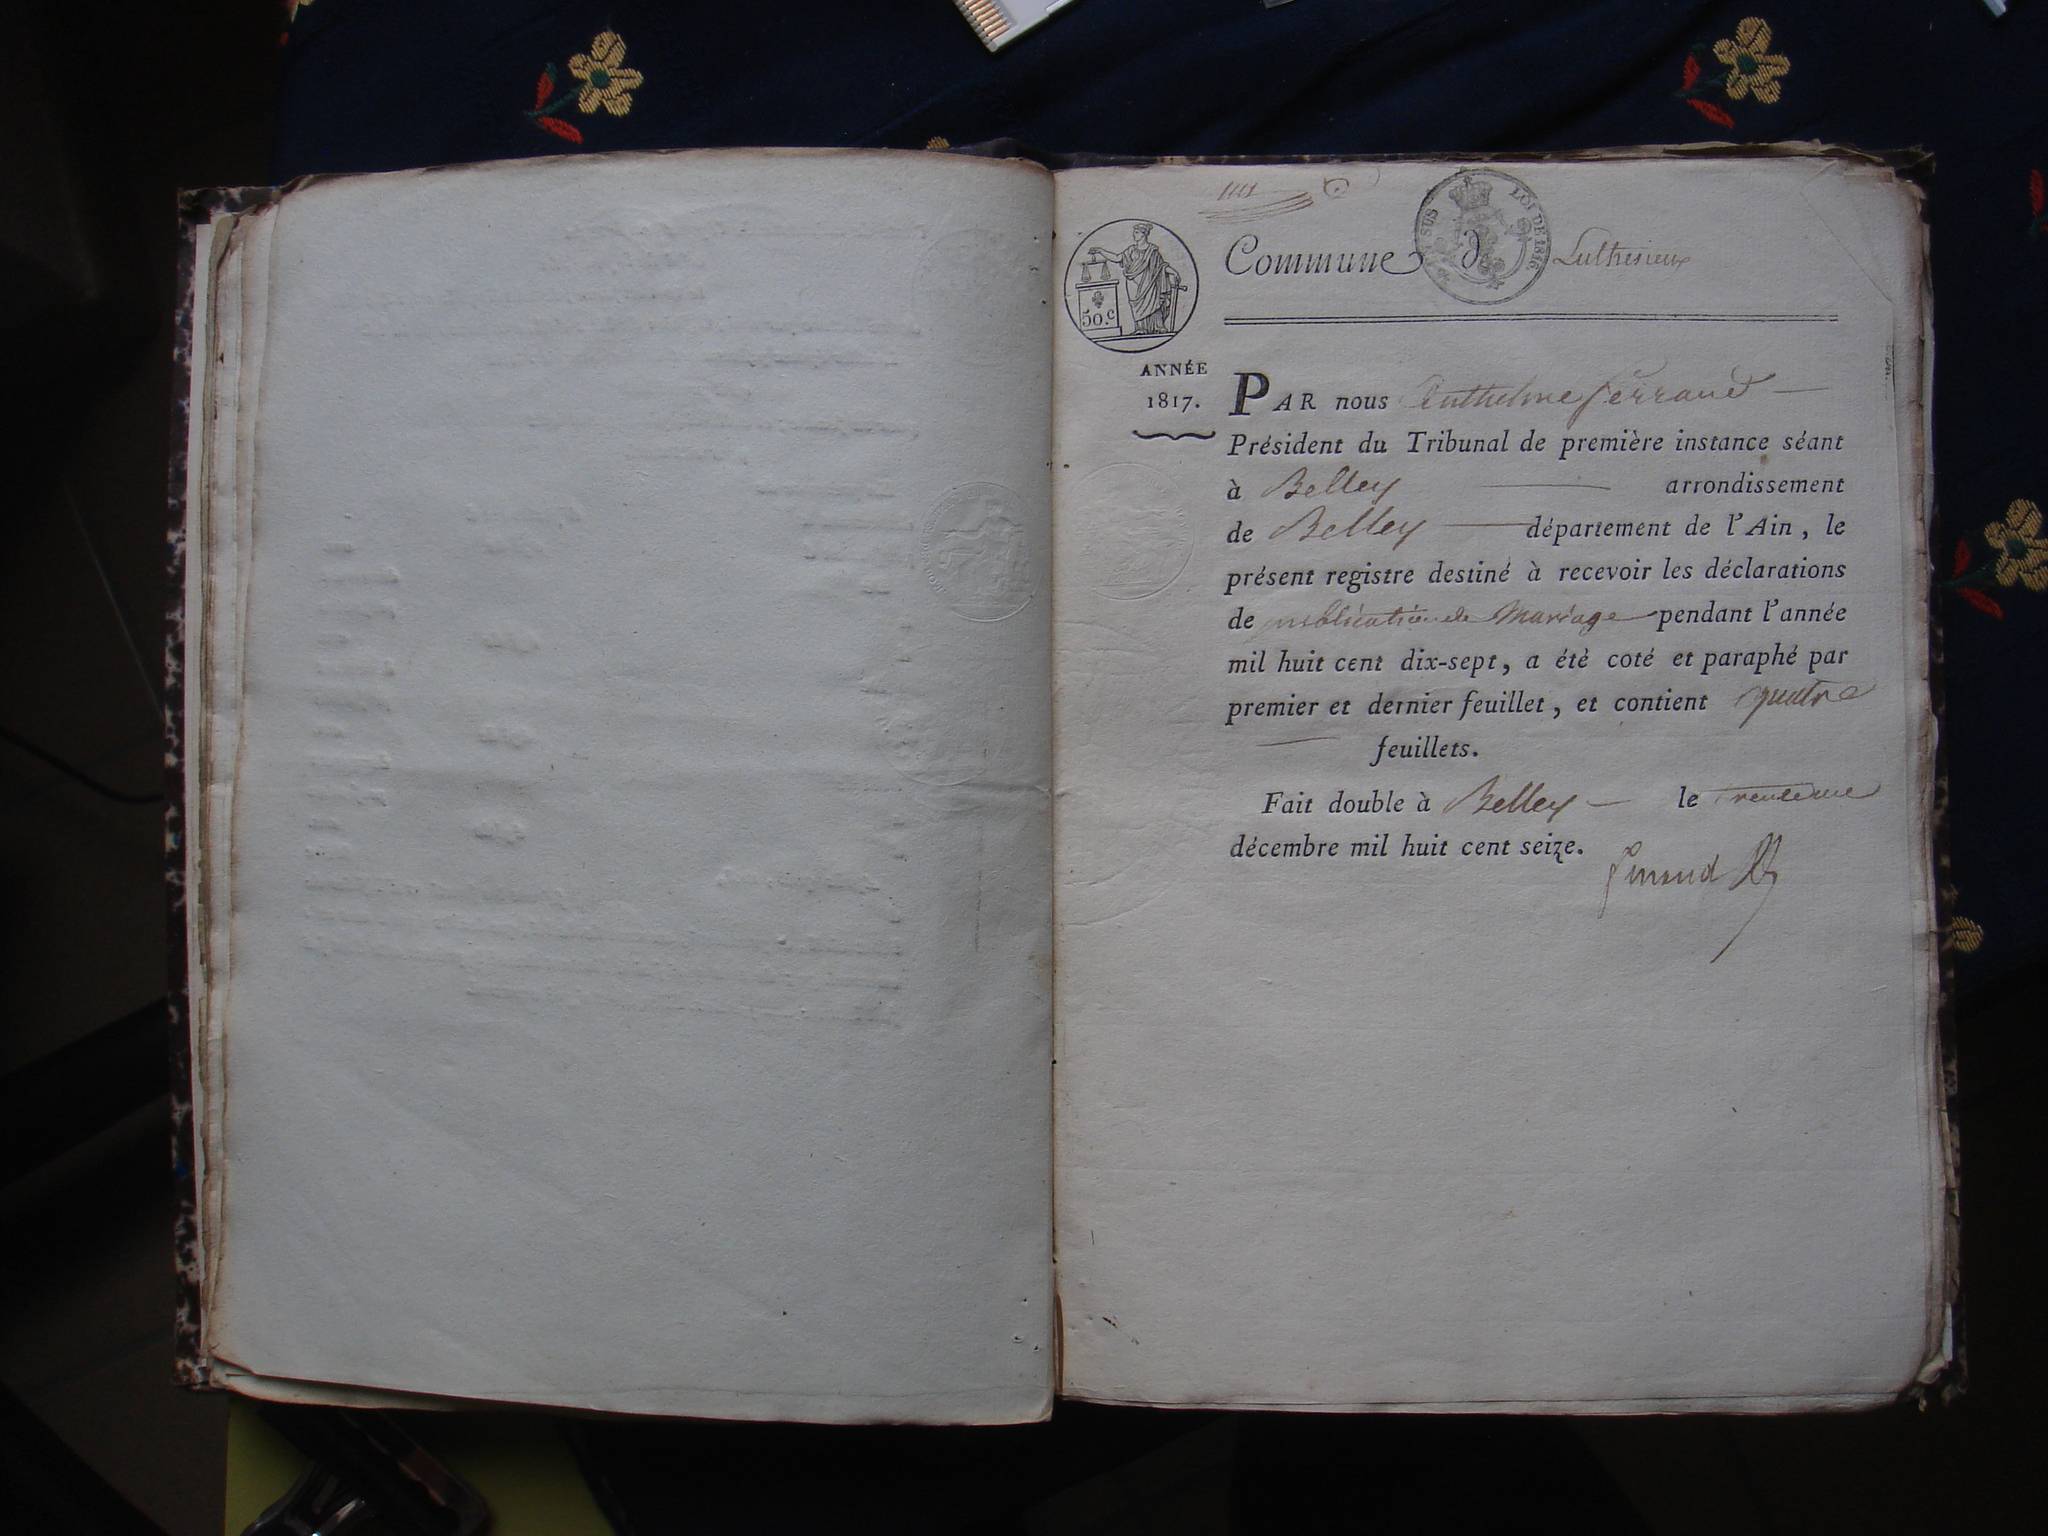 Commune de Luthesieux
SUS LOI DE 1816
50.c
ANNÉE
1817.
PAR nous Anthelme Ferrand
Président du Tribunal de première instance séant
à Belley arrondissement
de Belley département de l'Ain, le
présent registre destiné à recevoir les déclarations
de publication de Mariage pendant l'année
mil huit cent dix-sept, a été coté et paraphé par
premier et dernier feuillet, et contient quatre
feuillets.
Fait double à Belley le
décembre mil huit cent seize.